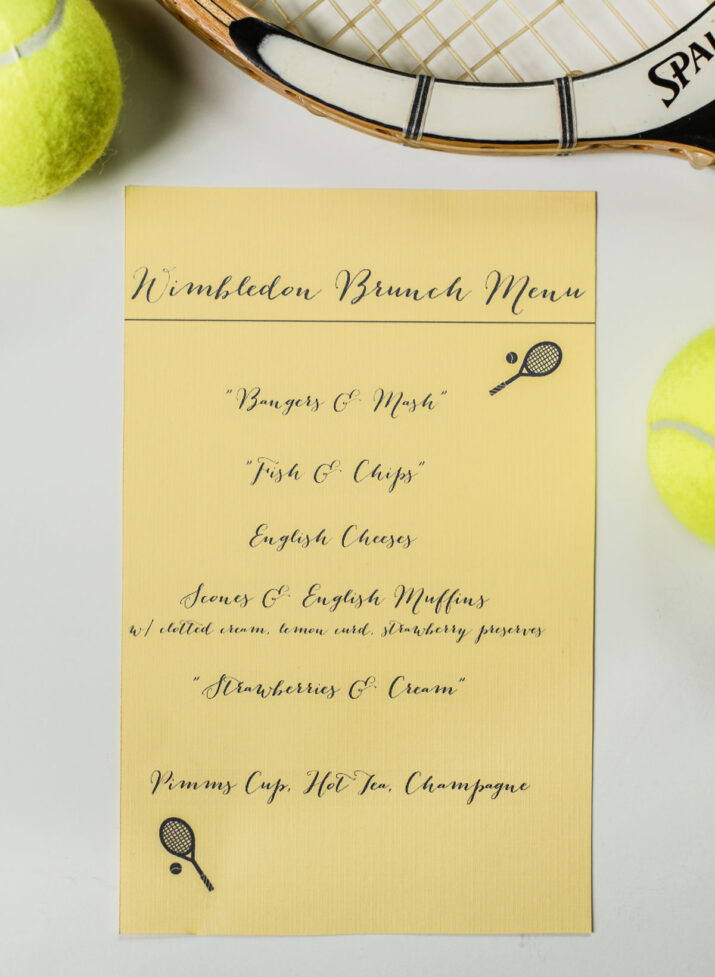 SPAL
Wimbledon Brunch Menu
"Bangers & Mash"
"Fish & Chips"
English Cheeses
Scones & English Muffins
w/ clotted cream, lemon curd, strawberry preserves
"Strawberries & Cream"
Pimms Cup, Hot Tea, Champagne